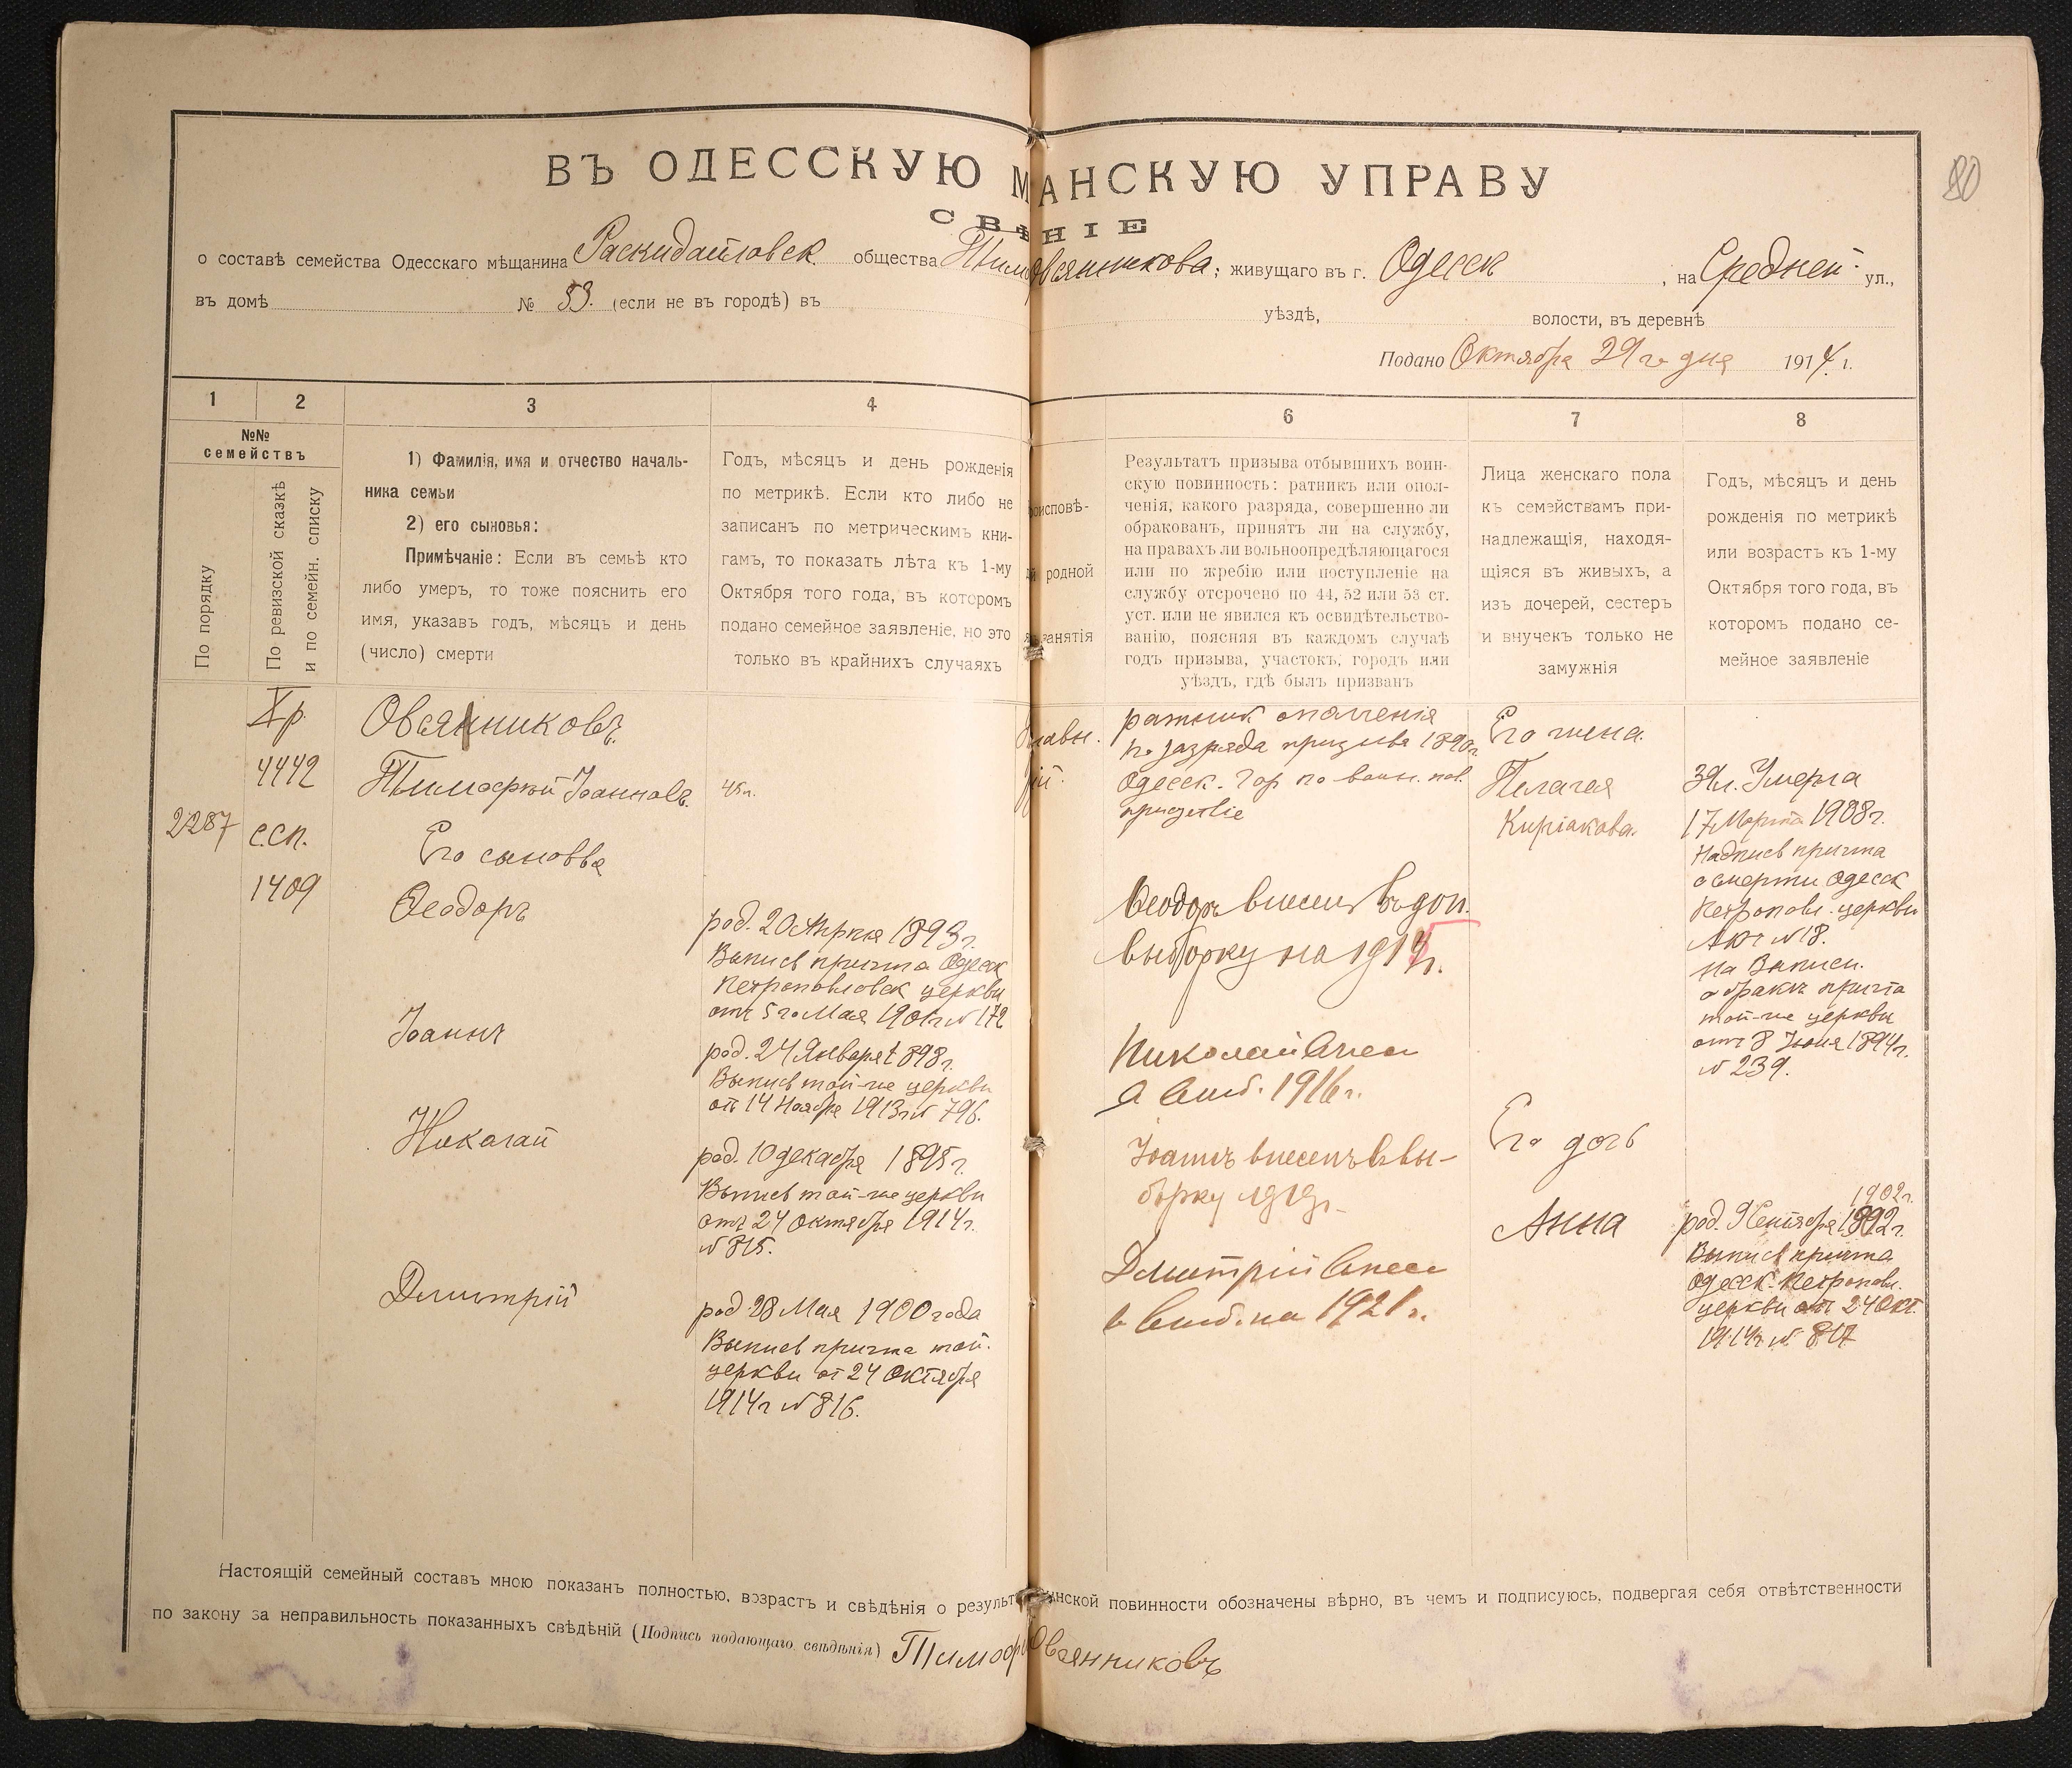 80
ВЪ ОДЕССКУЮ М АНСКУЮ УПРАВУ
СВѢ НІЕ
о составѣ семейства Одесскаго мѣщанина Раскидайловск. общества Тим Овсянникова, живущаго въ г. Одессѣ, на Средней ул.,
въ домѣ № 53. (если не въ городѣ) въ уѣздѣ, волости, въ деревнѣ
Подано Октября 29 го дня 1914 г.
1 2 3 4 6 7 8
№№
семействъ
По порядку
По ревизской сказкѣ
и по семейн. списку
1) Фамилія, имя и отчество началь-
ника семьи
2) его сыновья:
Примѣчаніе: Если въ семьѣ кто
либо умеръ, то тоже пояснить его
имя, указавъ годъ, мѣсяцъ и день
(число) смерти
Годъ, мѣсяцъ и день рожденія
по метрикѣ. Если кто либо не
записанъ по метрическимъ кни-
гамъ, то показать лѣта къ 1-му
Октября того года, въ которомъ
подано семейное заявленіе, но это
только въ крайнихъ случаяхъ
оисповѣ-
родной
занятія
Результатъ призыва отбывшихъ воин-
скую повинность: ратникъ или опол-
ченія, какого разряда, совершенно ли
обракованъ, принятъ ли на службу,
на правахъ ли вольноопредѣляющагося
или по жребію или поступленіе на
службу отсрочено по 44, 52 или 53 ст.
уст. или не явился къ освидѣтельство-
ванію, поясняя въ каждомъ случаѣ
годъ призыва, участокъ, городъ или
уѣздъ, гдѣ былъ призванъ
Лица женскаго пола
къ семействамъ при-
надлежащія, находя-
щіяся въ живыхъ, а
изъ дочерей, сестеръ
и внучекъ только не
замужнія
Годъ, мѣсяцъ и день
рожденія по метрикѣ
или возрастъ къ 1-му
Октября того года, въ
которомъ подано се-
мейное заявленіе
2287
Хр.
4442
с.сп.
1409
Овсянниковъ
Тимофей Іоанновъ.
Его сыновья
Ѳеодоръ
Іоаннъ
Николай
Дмитрій
45 л.
род. 20 Апрѣля 1893 г.
Выпись причта Одесск
Петропавловск церкви
отъ 5 го Мая 1901 г № 172
род. 24 Января 1898 г.
Выпись той-же церкви
отъ 14 Ноября 1913 г № 796.
род. 10 декабря 1895 г.
Выпись той-же церкви
отъ 24 октября 1914 г.
№ 815.
род. 28 Мая 1900 года
Выпись причта той-
церкви от 24 Октября
1914 г № 816.
равн.
ій.
ратник ополченія
1 го разряда призыва 1890 г.
Одесск. Гор по воин. пов.
присутствіе
Ѳеодоръ внесенъ въ доп.
выборку на 1914 г.
Николай внесен
в выб. 1916 г.
Іоаннъ внесенъ въ вы-
борку 1919 г.
Дмитрій внесен
в выб. на 1921 г.
Его жена.
Пелагея
Киріакова.
Его дочь
Анна
39 л. Умерла
17 Марта 1908 г.
Надпись причта
о смерти Одесск
Петропавл. церкви
№ 18.
на Выписи.
о бракѣ причта
той-же церкви
отъ 8 Іюня 1894 г.
№ 239.
1902 г.
род. 9 Сентября 1892 г.
Выпись причта
Одесск. Петропавл.
церкви отъ 24 Окт.
1914 г. № 817
Настоящій семейный составъ мною показанъ полностью, возрастъ и свѣдѣнія о результ инской повинности обозначены вѣрно, въ чемъ и подписуюсь, подвергая себя отвѣтственности
по закону за неправильность показанныхъ свѣдѣній (Подпись подающаго свѣдѣнія) Тимоф Овсянниковъ